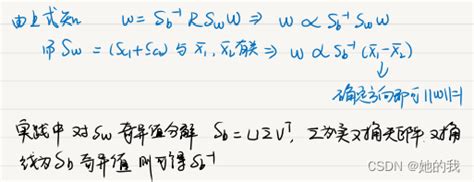 由上式知 w = S_b^{-1} R S_w w ⇒ w ∝ S_b^{-1} S_w w
而 S_w = (S_{c1}+S_{c2}) 与 x̄_1, x̄_2 有关 ⇒ w ∝ S_b^{-1} (x̄_1-x̄_2)
↓
确定方向即可 ||w||=1
实践中 对 S_w 奇异值分解 S_b = U Σ V^T, Σ为实对角矩阵 对角
线为 S_b 奇异值 则可得 S_b^{-1}
CSDN @她的我